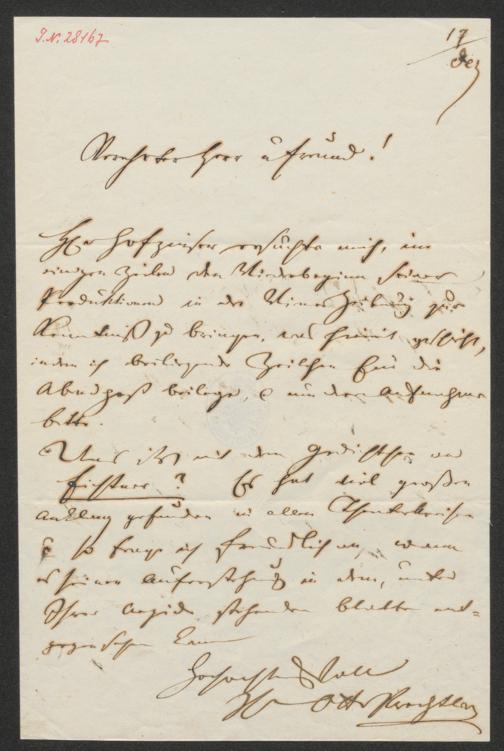 I.N. 28167
17
Dez
Verehrter Herr u Freund!
Hr Hofzinser ersuchte mich, in
einigen Zeilen den Wiederbeginn seiner
Produktionen in der Wiener Zeitung zur
Kenntniß zu bringen, was hiemit geschieht,
indem ich beiliegende Zeilchen für die
Abendpost beilege, & um deren Aufnahme
bitte.
Was ist mit dem Gedichtchen an
Fichtner? Es hat viel großen
Anklang gefunden in allen Theaterkreisen
& so frage ich freundlich an, wann
es seiner Auferstehung in dem, unter
Ihrer Aegide stehenden Blatte ent=
gegensehen kann
Hochachtungsvoll
Ihr Otto Prechtler